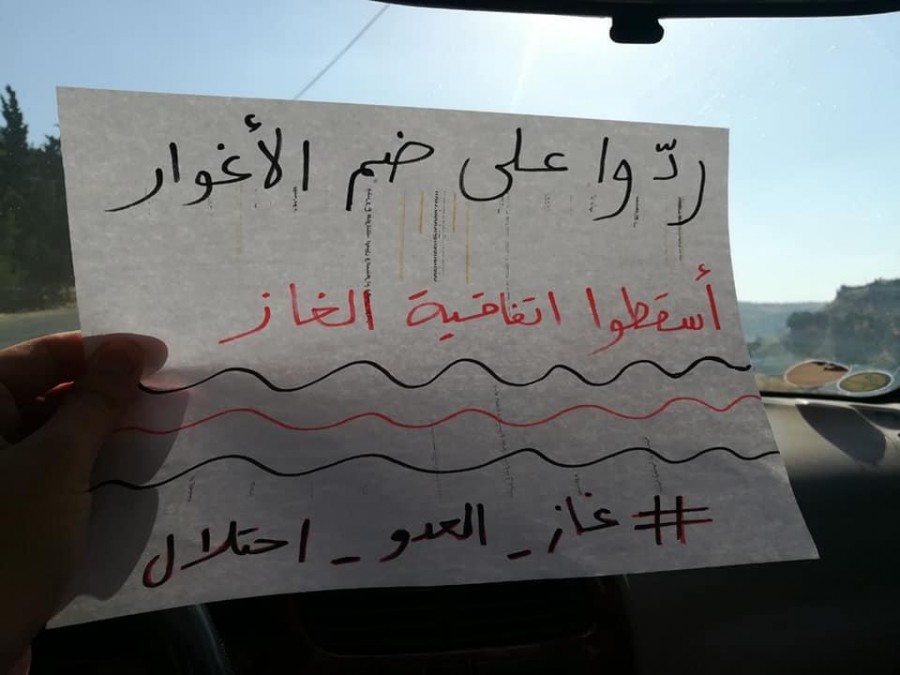 ردّوا على ضم الأغوار
أسقطوا اتفاقية الغاز
#غاز_العدو_احتلال